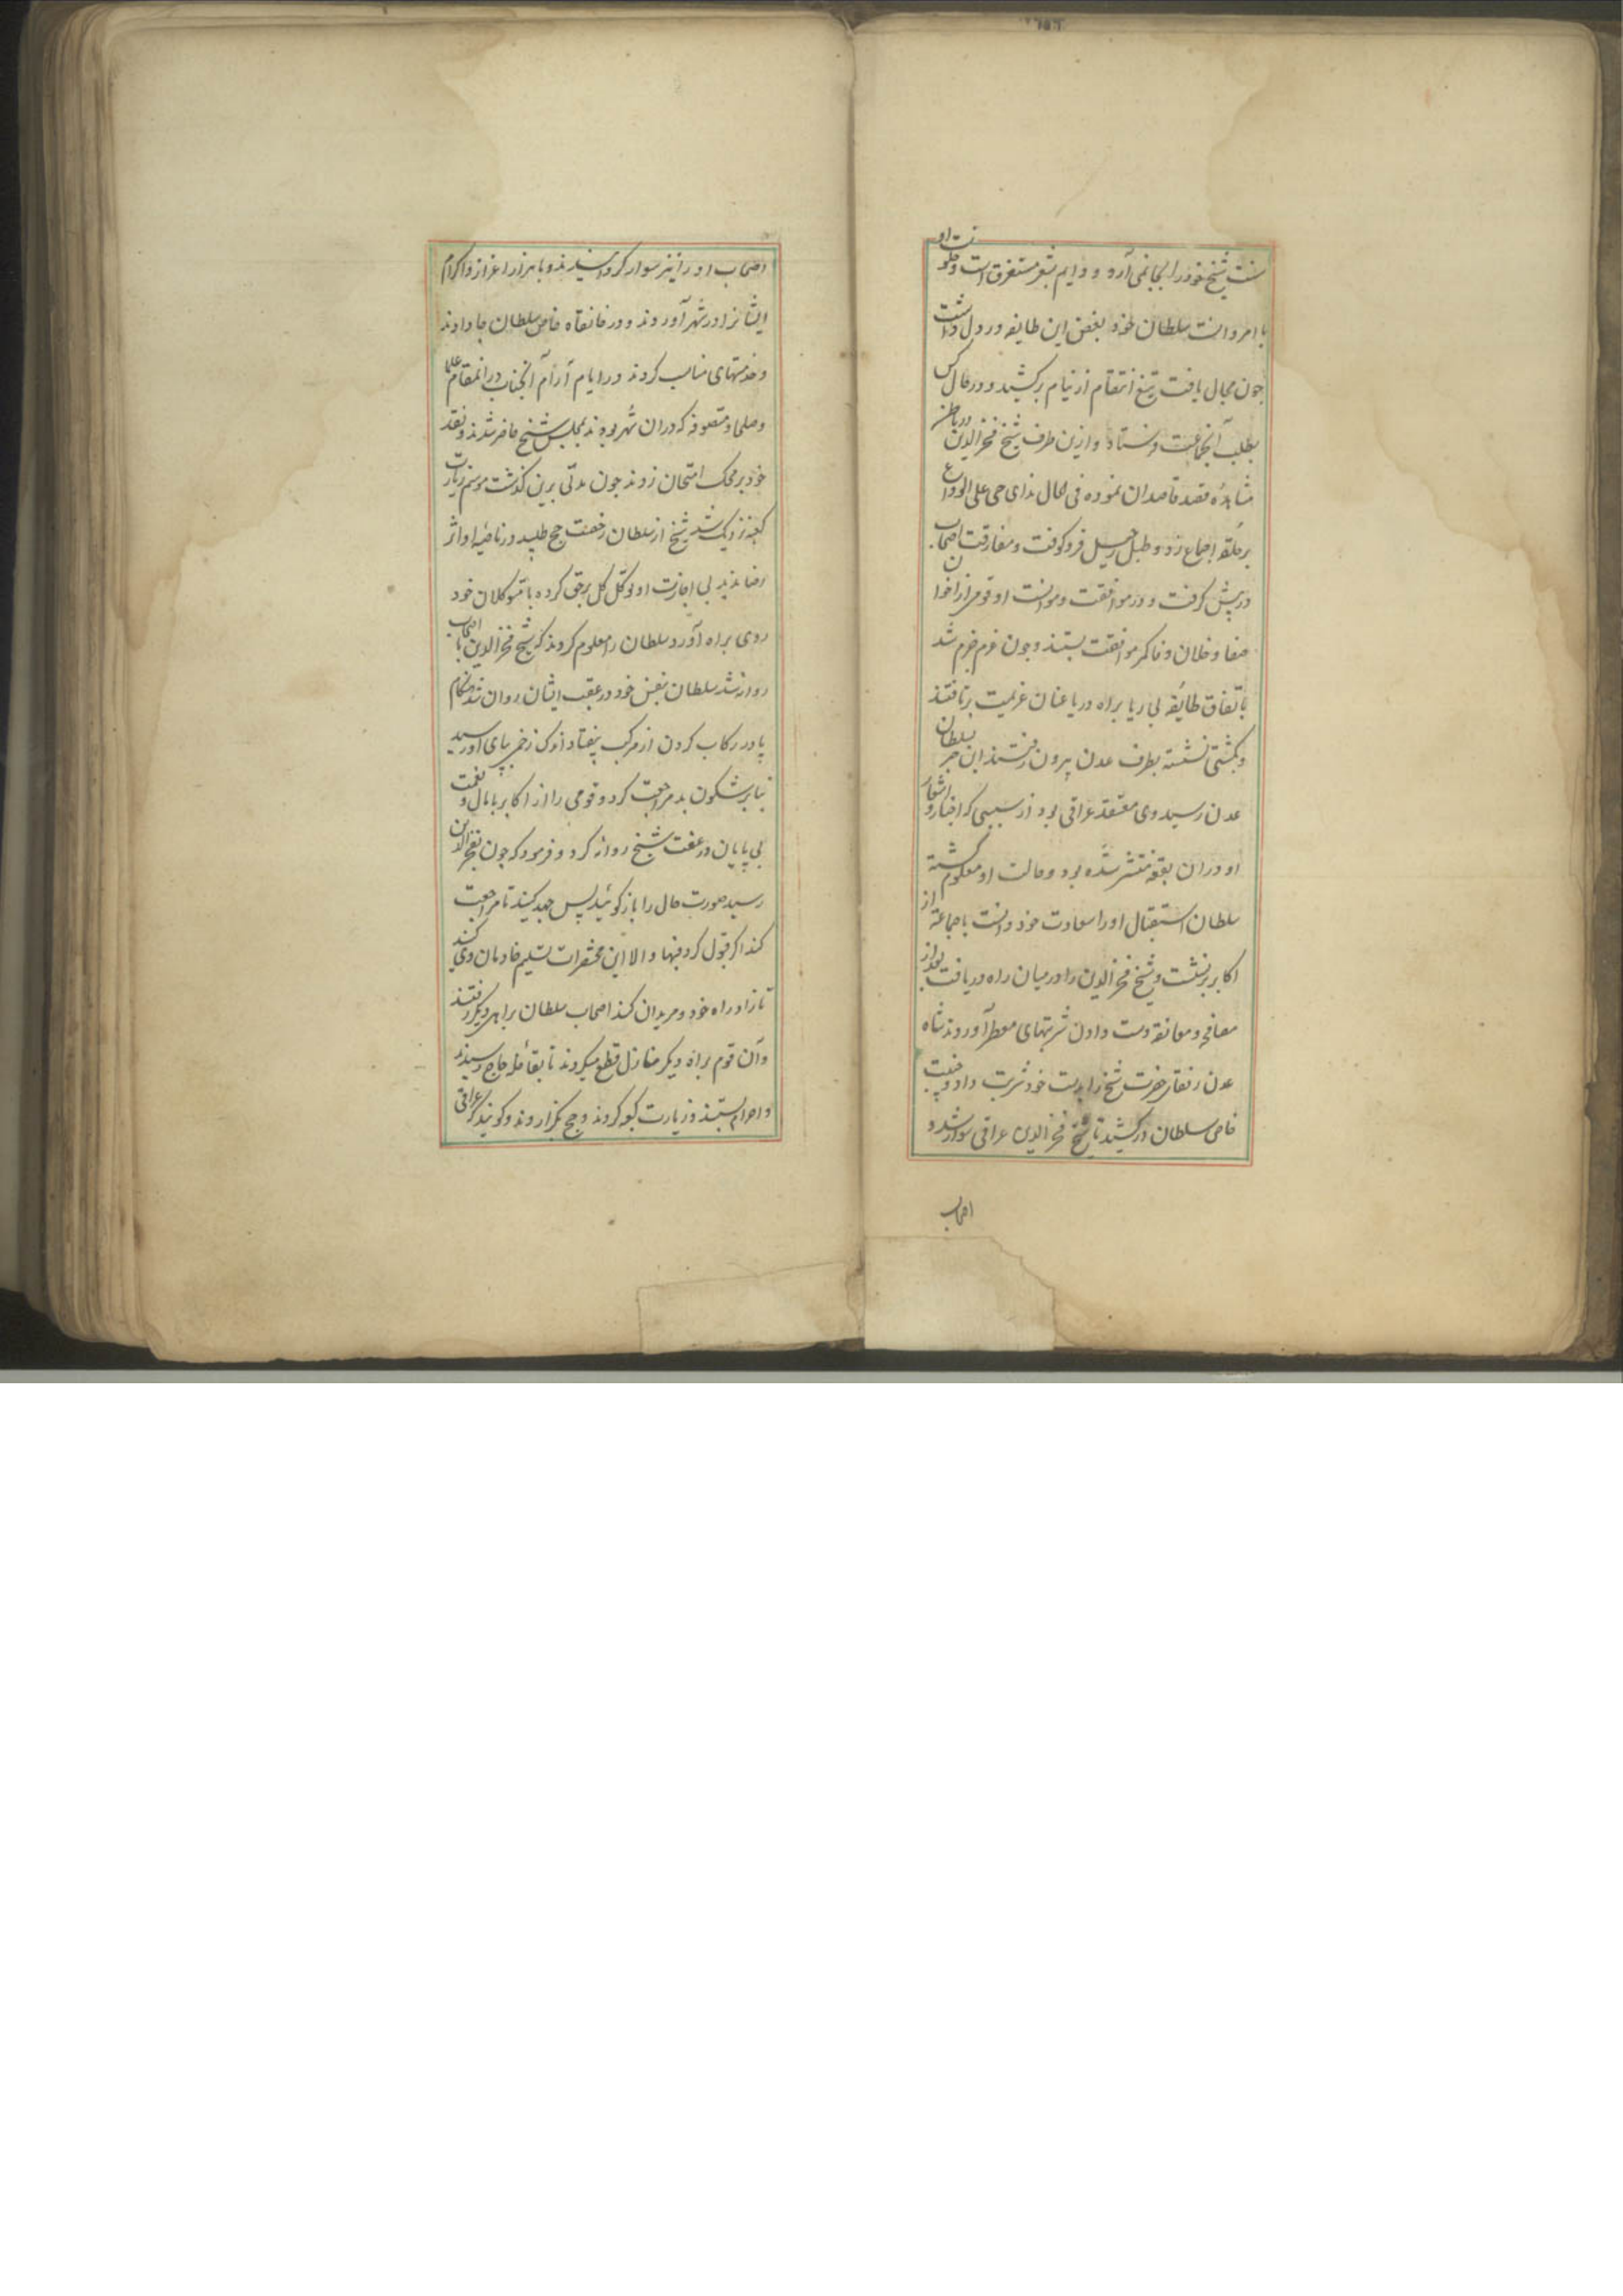 سنت شیخ خود را بجا نمی آرد و دایم بشعر مستغرق است و خلوت او
با امردانست سلطان خود بغض این طایفه در دل داشت
چون مجال یافت تیغ انتقام از نیام برکشید و در حال کس
بطلب آنجماعت فرستاد و ازین طرف شیخ فخرالدین در باطن
مشاهده قصد قاصدان نموده فی الحال ندای حی علی الوداع
بر حلقه اجماع زد و طبل رحیل فرو کوفت و مفارقت اصحاب
در پیش گرفت و در موافقت و موانست او قومی از اخوان
صفا و خلان وفا کمر موافقت بستند و چون عزم جزم شد
باتفاق طایفه بی ریا براه دریا عنان عزیمت برتافتند
و بکشتی نشسته بطرف عدن بیرون رفتند این خبر بسلطان
عدن رسید وی معتقد عراقی بود از سببی که اخبار و اشعار
او دران بقعه منتشر شده بود و حالت او معلوم گشته
سلطان استقبال او را سعادت خود دانست با جماعة از
اکابر برنشست و شیخ فخرالدین را در میان راه دریافت بعد از
مصافحه و معانقه دست دادن شربتهای معطر آوردند شاه
عدن رفقای حضرت شیخ را بدست خود شربت داد و جنیبت
خاص سلطان درکشید تا شیخ فخرالدین عراقی سوار شد و
اصحاب
اصحاب او را نیز سوار گردانیدند و با هزار اعزاز و اکرام
ایشانرا در شهر آوردند و در خانقاه خاص سلطان جا دادند
و خدمتهای مناسب کردند در ایام آرام آنجناب در آنمقام علما
و صلحا و متصوفه که دران شهر بودند بمجلس شیخ حاضر شدند و نقد
خود بر محک امتحان زدند چون مدتی برین گذشت موسم زیارت
کعبه نزدیک شد شیخ از سلطان رخصت حج طلبید در ناصیه او اثر
رضا ندید بی اجازت او توکل کل برحق کرده با متوکلان خود
روی براه آورد سلطان را معلوم کردند که شیخ فخرالدین با اصحاب
روانه شد سلطان بنفس خود در عقب ایشان روان شد هنگام
پا در رکاب کردن از مرکب بیفتاد اندک زخمی بپای او رسید
بنا بر شکون بد مراجعت کرد و قومی را از اکابر با مال و نعمت
بی پایان در عقب شیخ روانه کرد و فرمود که چون بفخرالدین
رسید صورت حال را بازگوئید پس جهد کنید تا مراجعت
کند اگر قبول کرد فبها و الا این محقرات تسلیم خادمان وی کنید
تا زاد راه خود و مریدان کند اصحاب سلطان براهی دیگر رفتند
و آن قوم براه دیگر منازل قطع میکردند تا بقافله حاج رسیدند
و احرام بستند و زیارت کعبه کردند و حج بگزاردند و گویند که عراقی